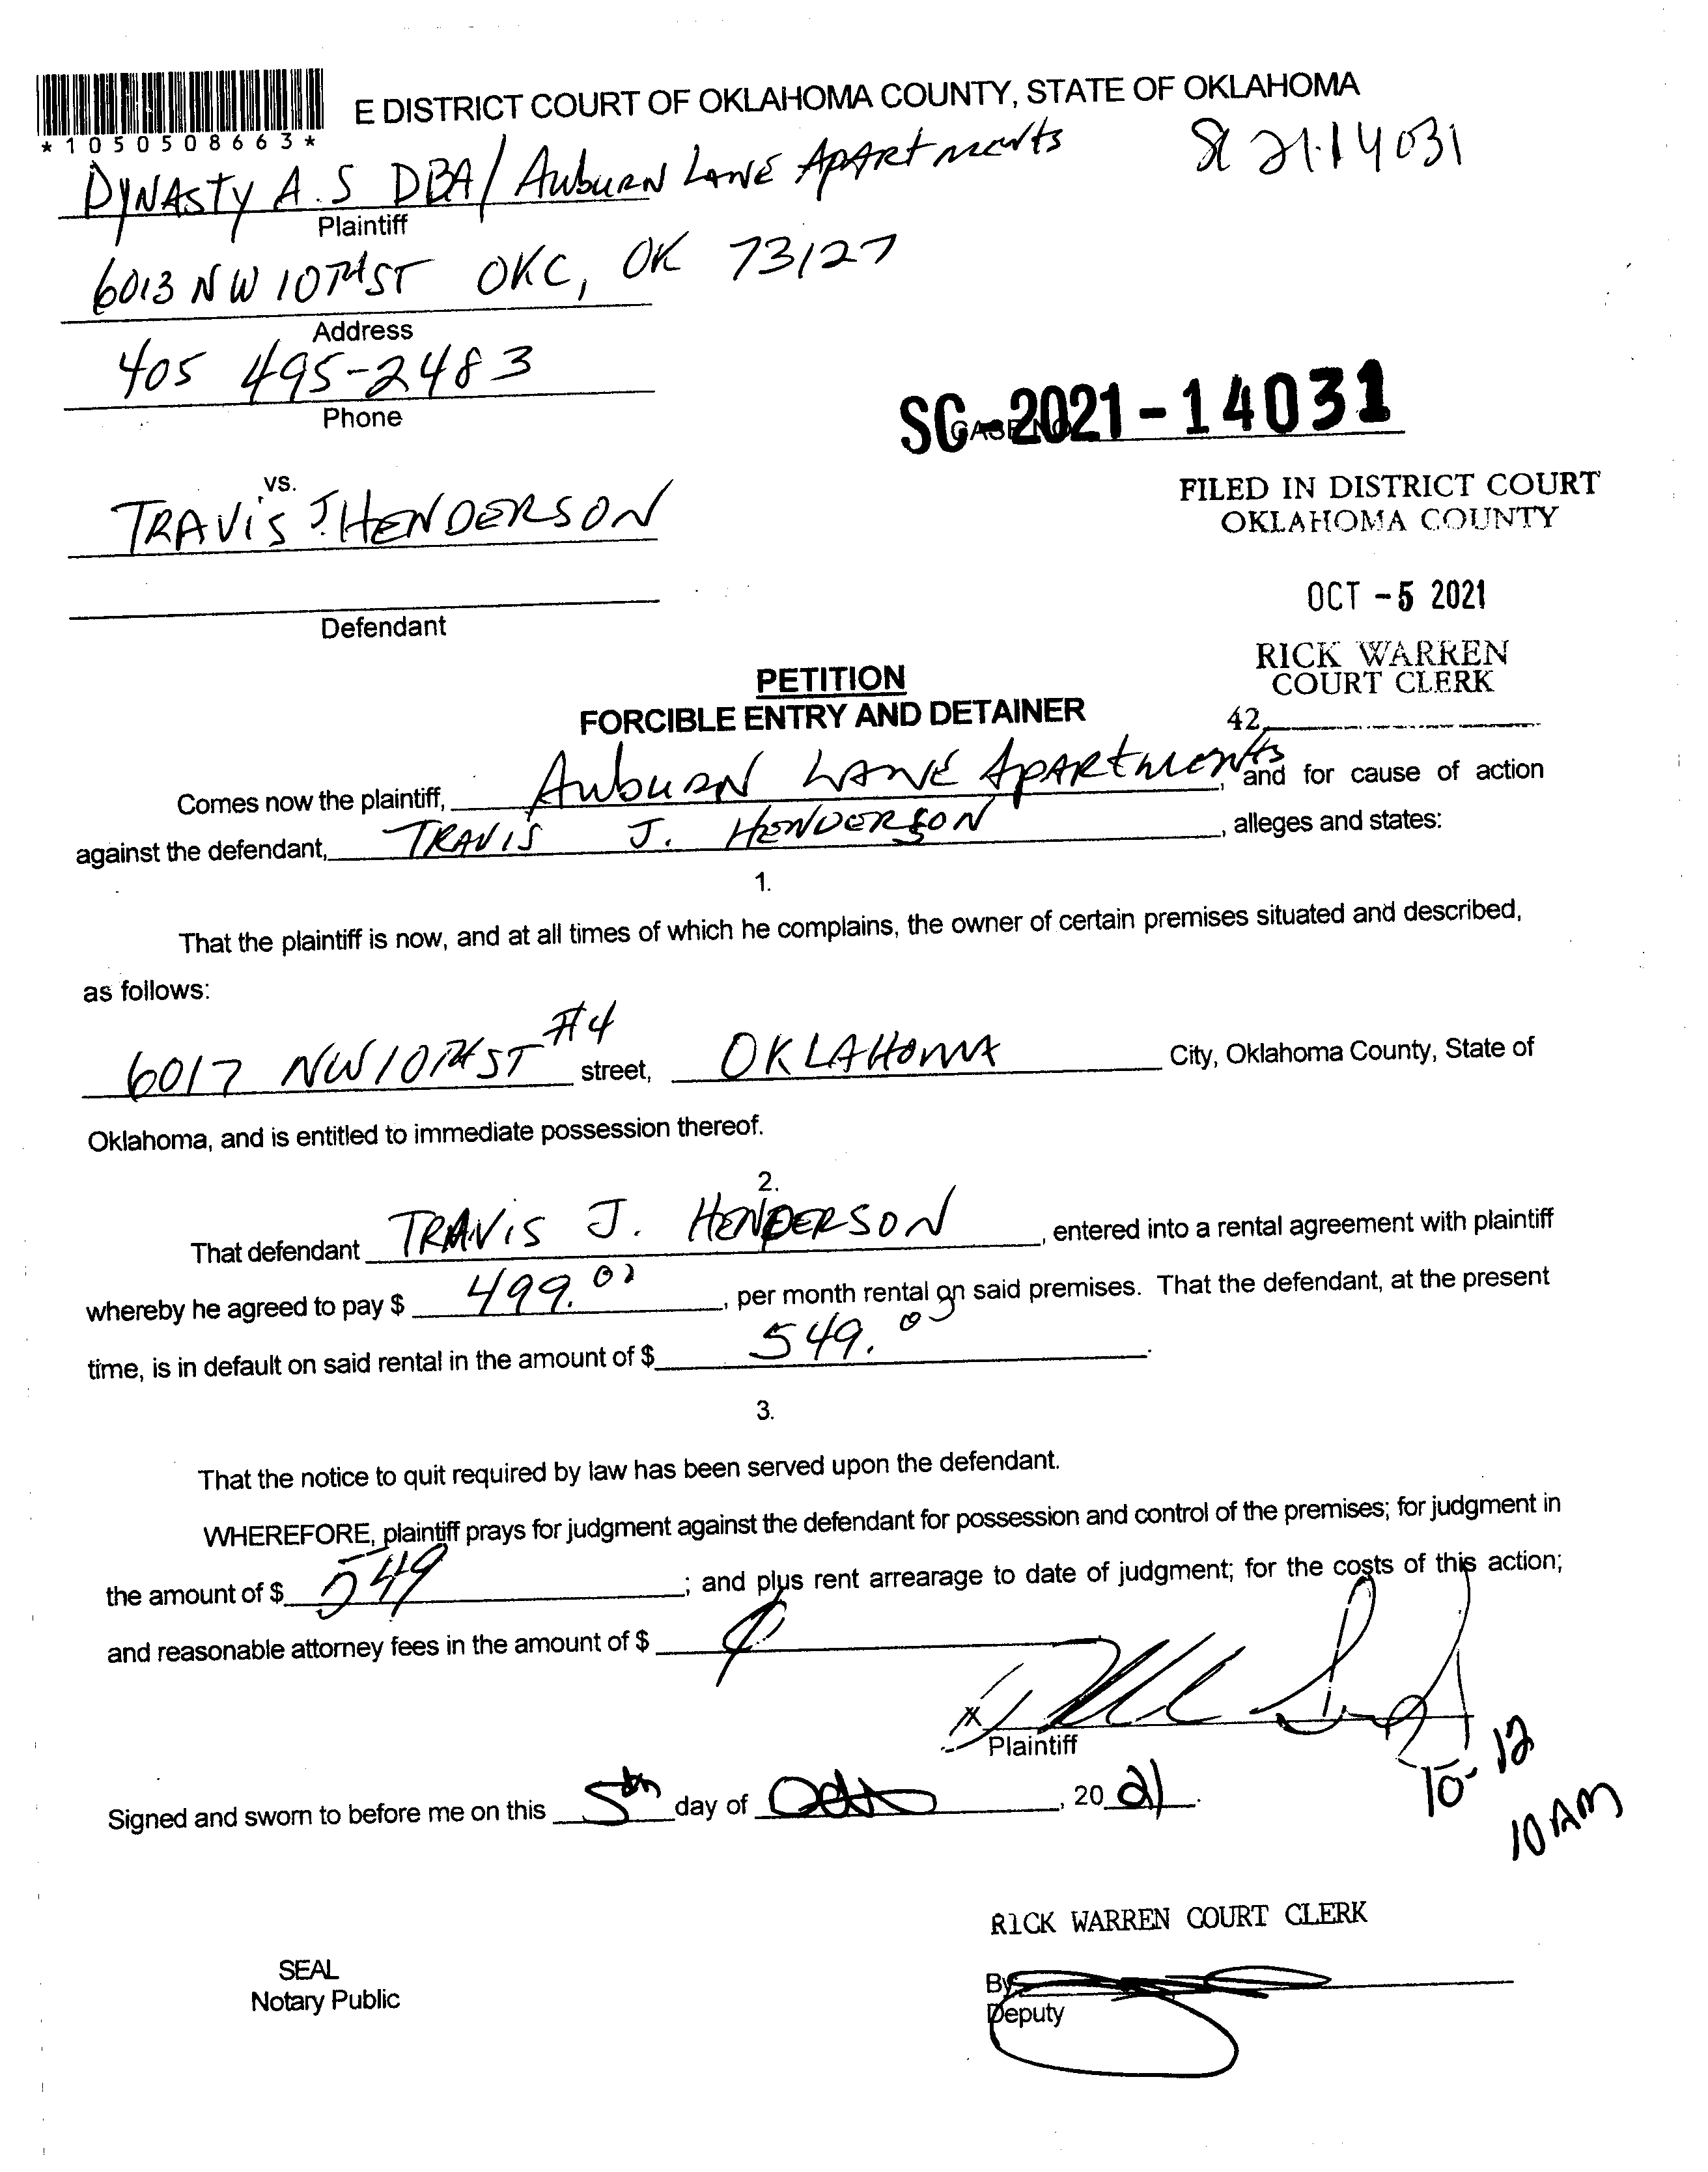 E DISTRICT COURT OF OKLAHOMA COUNTY, STATE OF OKLAHOMA
*1050508663*
21-14031
DYNASTY A.S DBA/ AUBURN LANE APARTMENTS
Plaintiff
6013 NW 10TH ST OKC, OK 73127
Address
405 495-2483
Phone
SC-2021-14031
CASE NO
vs.
TRAVIS J. HENDERSON
FILED IN DISTRICT COURT
OKLAHOMA COUNTY
OCT -5 2021
Defendant
RICK WARREN
COURT CLERK
42
PETITION
FORCIBLE ENTRY AND DETAINER
Comes now the plaintiff, AUBURN LANE APARTMENTS, and for cause of action
against the defendant, TRAVIS J. HENDERSON, alleges and states:
1.
That the plaintiff is now, and at all times of which he complains, the owner of certain premises situated and described,
as follows:
6017 NW 10TH ST #4 street, OKLAHOMA City, Oklahoma County, State of
Oklahoma, and is entitled to immediate possession thereof.
2.
That defendant TRAVIS J. HENDERSON, entered into a rental agreement with plaintiff
whereby he agreed to pay $ 499.00, per month rental on said premises. That the defendant, at the present
time, is in default on said rental in the amount of $ 549.00.
3.
That the notice to quit required by law has been served upon the defendant.
WHEREFORE, plaintiff prays for judgment against the defendant for possession and control of the premises; for judgment in
the amount of $ 549; and plus rent arrearage to date of judgment; for the costs of this action;
and reasonable attorney fees in the amount of $
X
Plaintiff
10-12
10 AM
Signed and sworn to before me on this 5th day of Oct, 2021.
RICK WARREN COURT CLERK
SEAL
Notary Public
By
Deputy